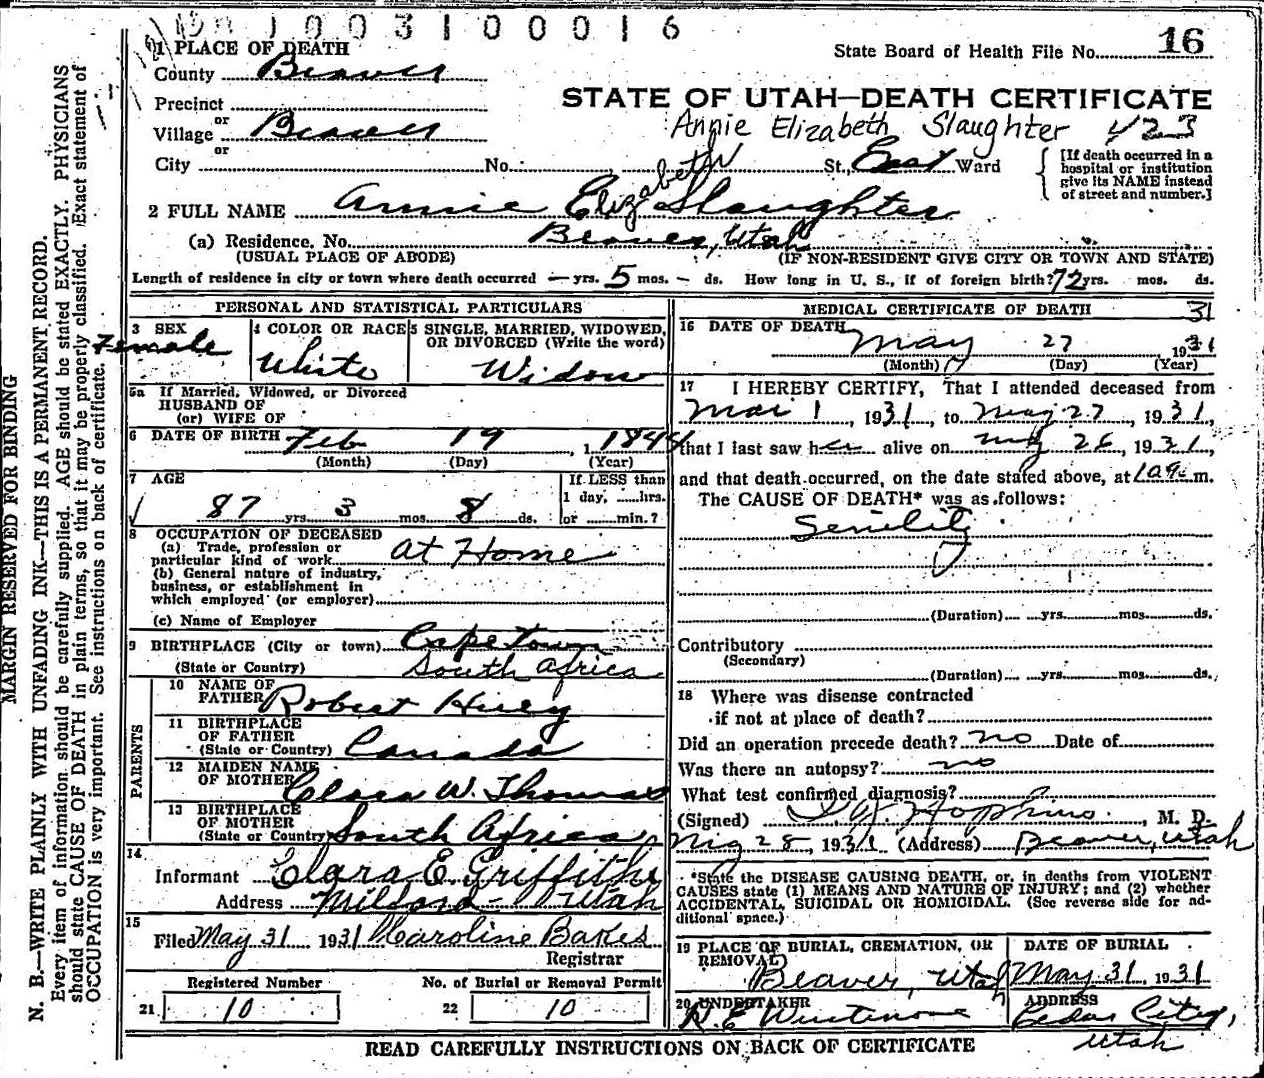 1003100016
State Board of Health File No. 16
1 PLACE OF DEATH
County Beaver
STATE OF UTAH—DEATH CERTIFICATE
Precinct
or
Annie Elizabeth Slaughter 423
Village Beaver
or
City No. St., East Ward
[If death occurred in a hospital or institution give its NAME instead of street and number.]
Elizabeth
2 FULL NAME Annie Eliz Slaughter
(a) Residence. No. Beaver, Utah
(USUAL PLACE OF ABODE) (IF NON-RESIDENT GIVE CITY OR TOWN AND STATE)
Length of residence in city or town where death occurred — yrs. 5 mos. – ds. How long in U. S., if of foreign birth? 72 yrs. mos. ds.
PERSONAL AND STATISTICAL PARTICULARS
3 SEX
Female
4 COLOR OR RACE
White
5 SINGLE, MARRIED, WIDOWED, OR DIVORCED (Write the word)
Widow
5a If Married, Widowed, or Divorced
HUSBAND OF
(or) WIFE OF
6 DATE OF BIRTH Feb 19, 1844
(Month) (Day) (Year)
7 AGE
87 yrs. 3 mos. 8 ds.
If LESS than
1 day, hrs.
or min.?
8 OCCUPATION OF DECEASED
(a) Trade, profession or
particular kind of work At Home
(b) General nature of industry,
business, or establishment in
which employed (or employer)
(c) Name of Employer
9 BIRTHPLACE (City or town) Cape Town
(State or Country) South Africa
PARENTS
10 NAME OF
FATHER Robert Huey
11 BIRTHPLACE
OF FATHER
(State or Country) Canada
12 MAIDEN NAME
OF MOTHER Clara W. Thomas
13 BIRTHPLACE
OF MOTHER
(State or Country) South Africa
14
Informant Clara E. Griffiths
Address Milford – Utah
15
Filed May 31 1931 Karoline Bakes
Registrar
Registered Number No. of Burial or Removal Permit
21 10 22 10
MEDICAL CERTIFICATE OF DEATH 31
16 DATE OF DEATH
May 27 1931
(Month) (Day) (Year)
17 I HEREBY CERTIFY, That I attended deceased from
Mar 1, 1931, to May 27, 1931,
that I last saw her alive on May 26, 1931,
and that death occurred, on the date stated above, at m.
The CAUSE OF DEATH* was as follows:
Senility
(Duration) yrs. mos. ds.
Contributory
(Secondary)
(Duration) yrs. mos. ds.
18 Where was disease contracted
if not at place of death?
Did an operation precede death? no Date of
Was there an autopsy? no
What test confirmed diagnosis?
(Signed) Hopkins, M. D.
28, 1931 (Address) Beaver, Utah
*State the DISEASE CAUSING DEATH, or, in deaths from VIOLENT
CAUSES state (1) MEANS AND NATURE OF INJURY; and (2) whether
ACCIDENTAL, SUICIDAL OR HOMICIDAL. (See reverse side for ad-
ditional space.)
19 PLACE OF BURIAL, CREMATION, OR
REMOVAL
Beaver, Utah
DATE OF BURIAL
May 31, 1931
20 UNDERTAKER
R. E.
ADDRESS
Cedar City,
Utah
READ CAREFULLY INSTRUCTIONS ON BACK OF CERTIFICATE
MARGIN RESERVED FOR BINDING
N. B.—WRITE PLAINLY WITH UNFADING INK—THIS IS A PERMANENT RECORD.
Every item of information should be carefully supplied. AGE should be stated EXACTLY. PHYSICIANS
should state CAUSE OF DEATH in plain terms, so that it may be properly classified. Exact statement of
OCCUPATION is very important. See instructions on back of certificate.